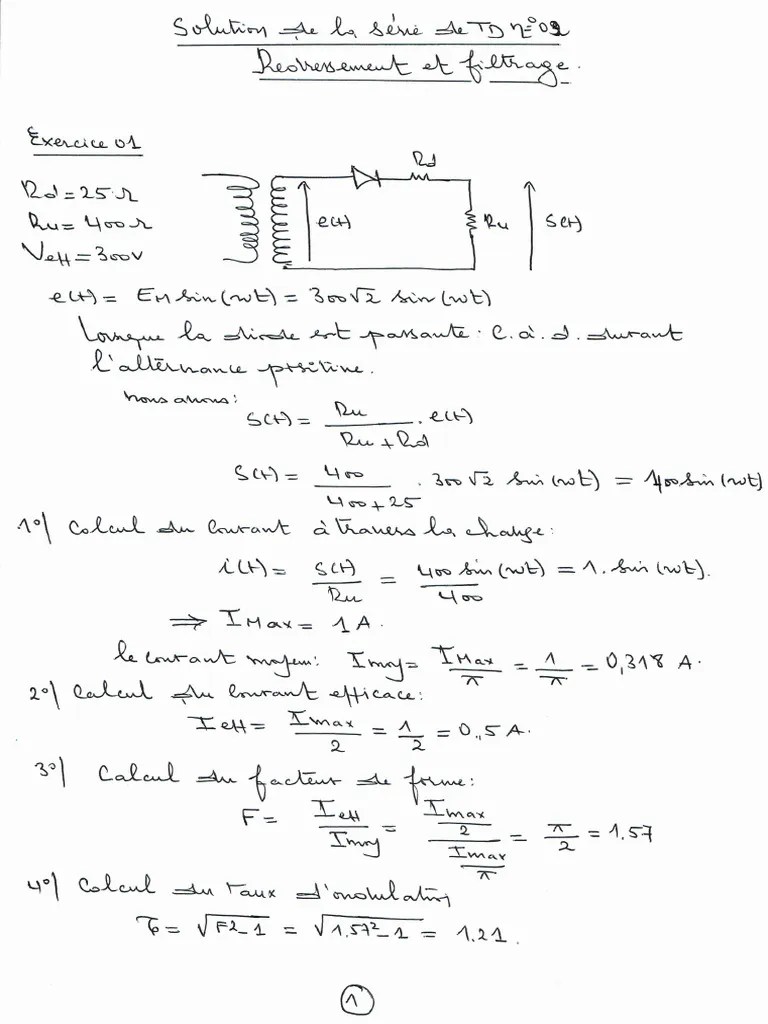 Solution de la série de TD n°02
Redressement et filtrage.
Exercice 01
Rd = 25 Ω
Ru = 400 Ω
Veff = 300 V
Rd
e(t)
Ru
S(t)
e(t) = EM sin(wt) = 300√2 sin(wt)
Lorsque la diode est passante : c. à. d. durant
l'alternance positive.
nous avons :
S(t) = Ru / (Ru + Rd) . e(t)
S(t) = 400 / (400 + 25) . 300√2 sin(wt) = 400 sin(wt)
1°/ Calcul du courant à travers la charge :
i(t) = S(t) / Ru = 400 sin(wt) / 400 = 1. sin(wt).
⇒ IMax = 1 A.
le courant moyen : Imoy = IMax / π = 1 / π = 0,318 A.
2°/ Calcul du courant efficace :
Ieff = Imax / 2 = 1 / 2 = 0.5 A.
3°/ Calcul du facteur de forme :
F = Ieff / Imoy = (Imax / 2) / (Imax / π) = π / 2 = 1.57
4°/ Calcul du taux d'ondulation
τ = √(F² - 1) = √(1.57² - 1) = 1.21.
1